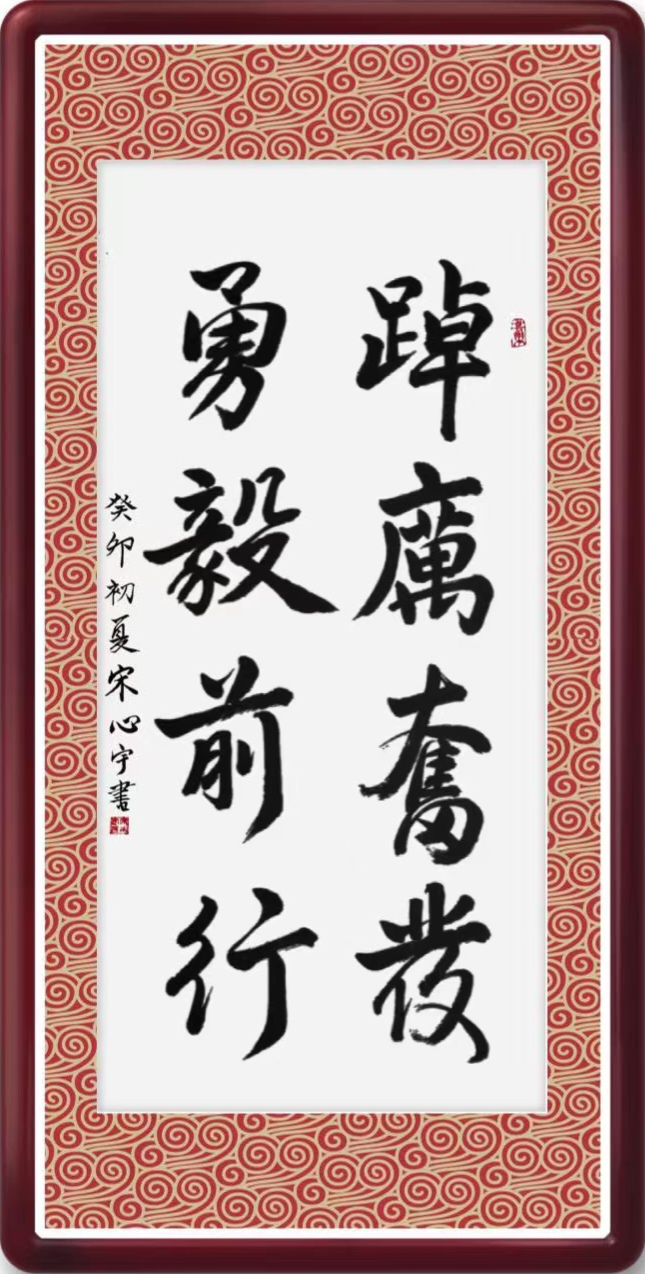 踔厲奮發
勇毅前行
癸卯初夏宋心宇書